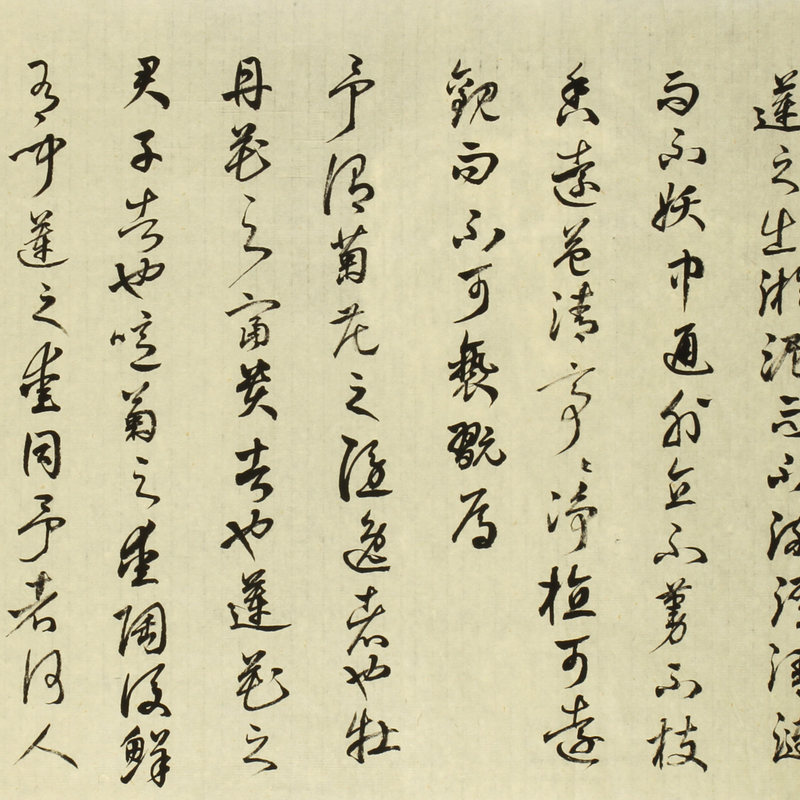 蓮之生淤泥而不染濯清漣
而不妖中通外直不蔓不枝
香遠益清亭〻淨植可遠
觀而不可褻翫焉
予謂菊花之隱逸者也牡
丹花之富貴者也蓮花之
君子者也噫菊之愛陶後鮮
有聞蓮之愛同予者何人